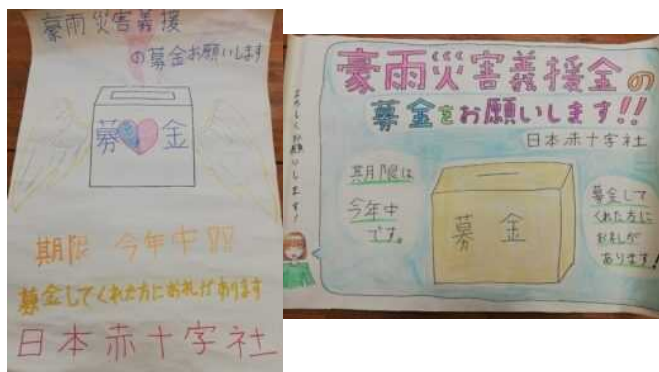 豪雨災害義援
の募金お願いします
募金
期限 今年中!!
募金してくれた方にお礼があります
日本赤十字社
豪雨災害義援金の
募金をお願いします!!
日本赤十字社
よろしくお願いします!
期限は
今年中
です。
募金
募金して
くれた方に
お礼が
あります!